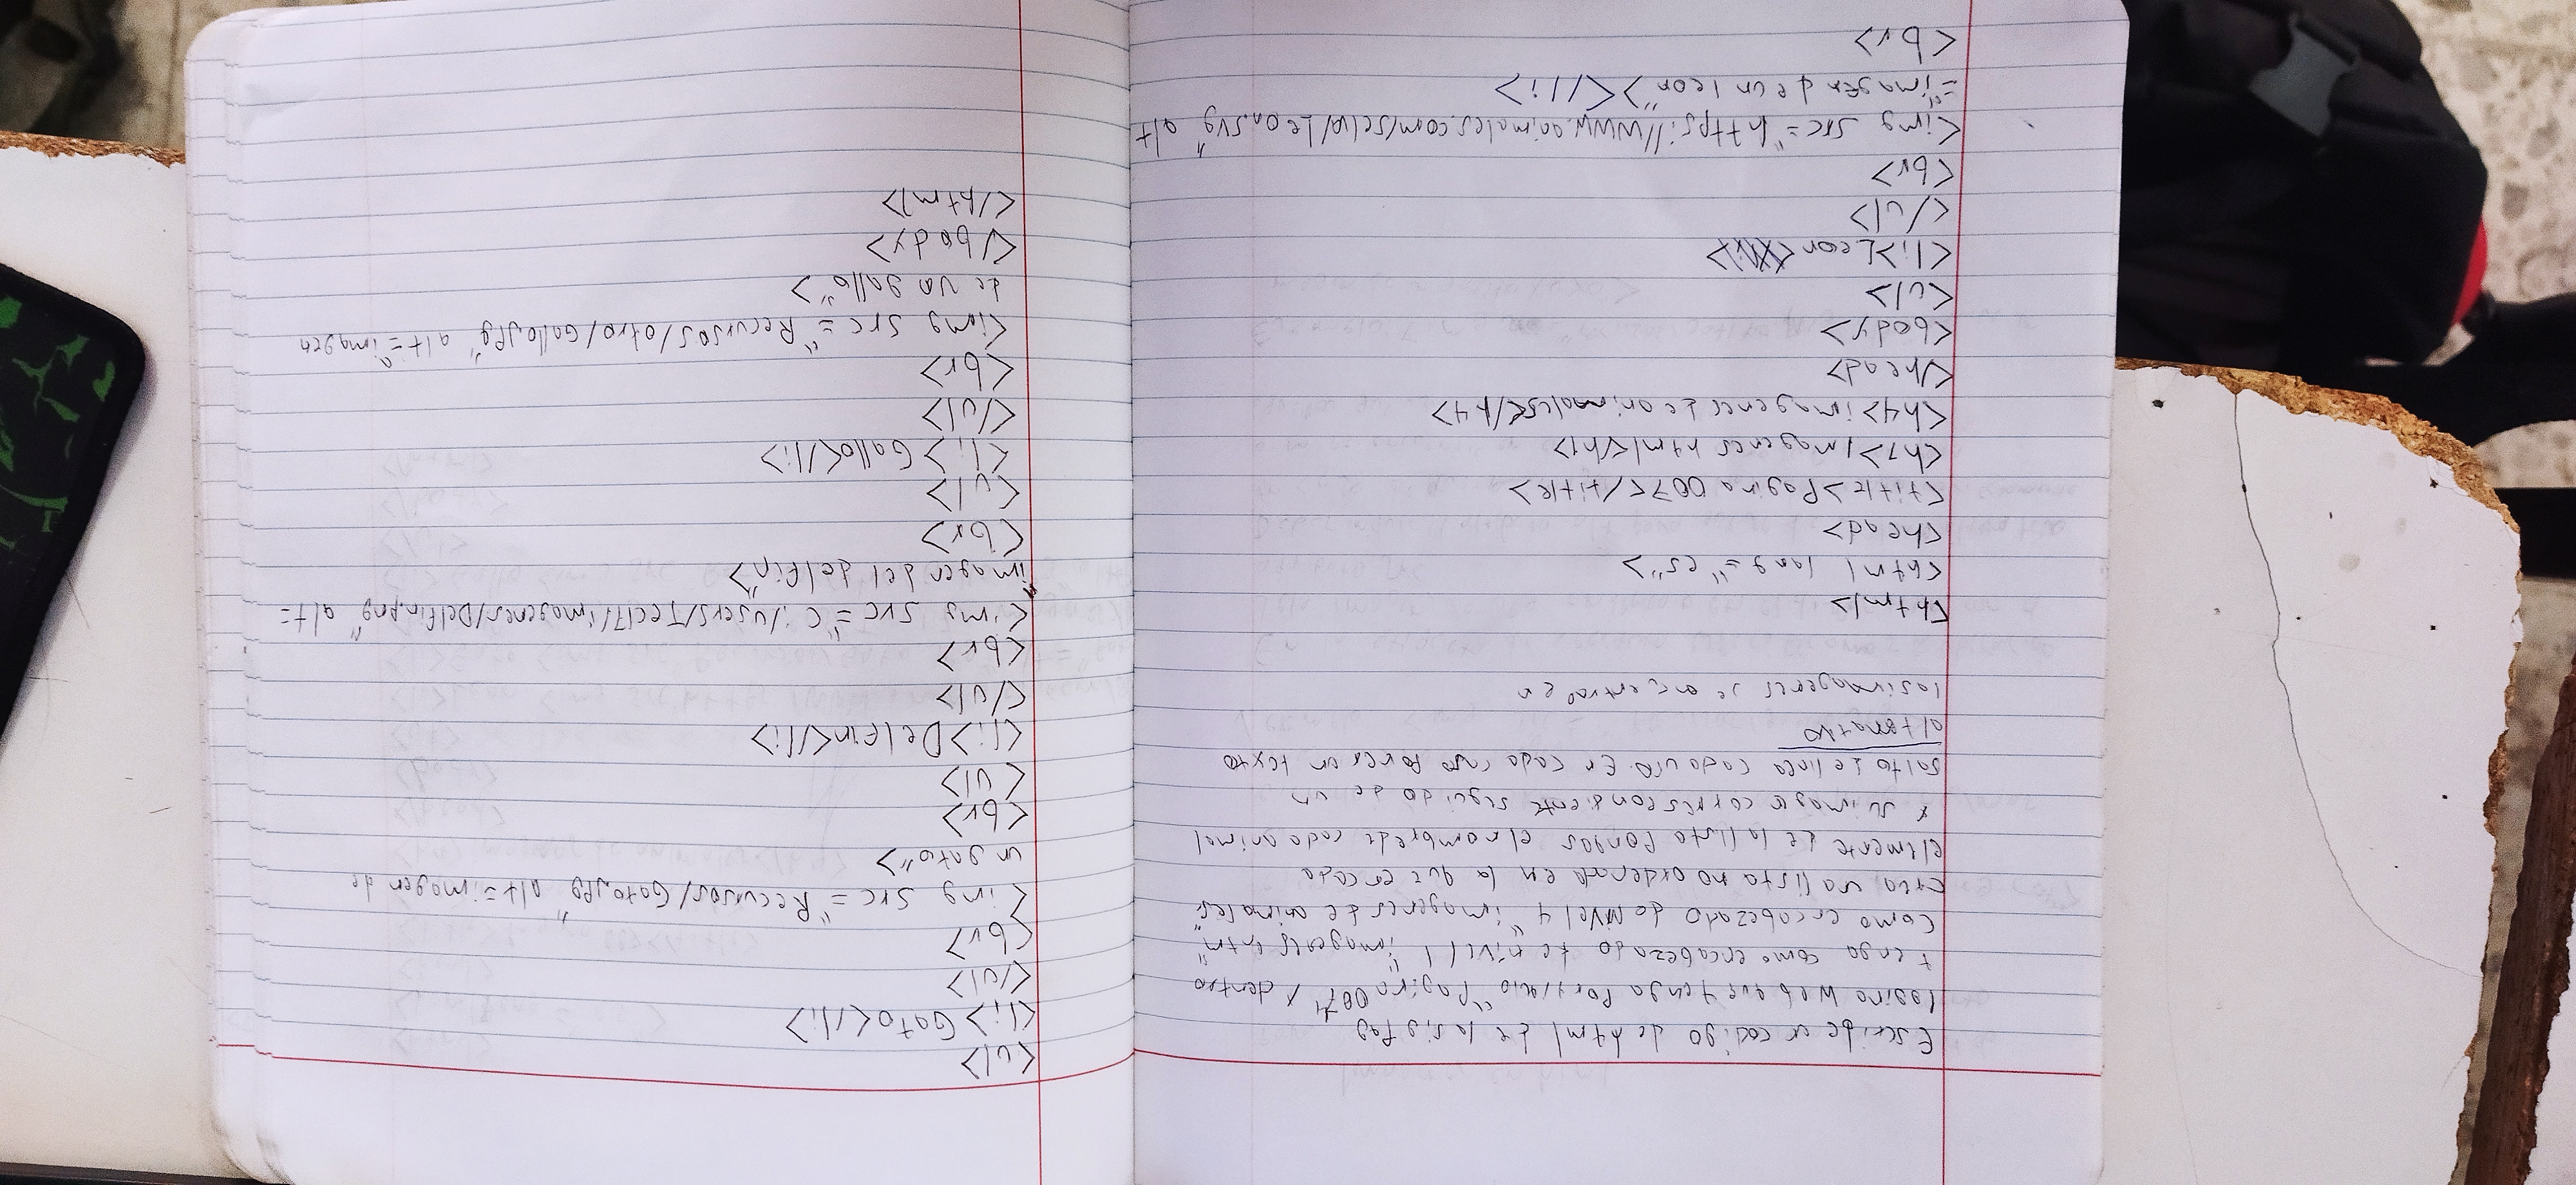 Escribe un codigo de html de la sig Pag
Pagina Web que tenga Por titulo "Pagina 007" y dentro
tenga como encabezado de nivel 1 "imagenes htm"
como encabezado do Nivel 4 "imagenes de animales"
crea una lista no ordenada en la que en cada
elmente de la lista Pongas el nombre de cada animal
y su image correspondiente seguido de un
salto de linea cada uno. En cada una Pones un texto
alternativo
las imagenes se encuentran en
<html>
<html lang="es">
<head>
<title>Pagina 007</title>
<h1>Imagenes html<h1>
<h4>imagenes de animales</h4>
</head>
<body>
<ul>
<li>Leon
</ul>
<br>
<img src="https://www.animales.com/selva/Leon.svg" alt
="imagen de un leon"></li>
<br>
<ul>
<li>Gato</li>
</ul>
<br>
<img src="Recursos/Gato.jpg" alt=imagen de
un gato">
<br>
<ul>
<li>Delfin</li>
</ul>
<br>
<img src="C:/users/Tecl71/imagenes/Delfin.png" alt=
"imagen del delfin">
<br>
<ul>
<li>Gallo</li>
</ul>
<br>
<img src="Recursos/otro/Gallo.jpg" alt="imagen
de un gallo">
</body>
</html>